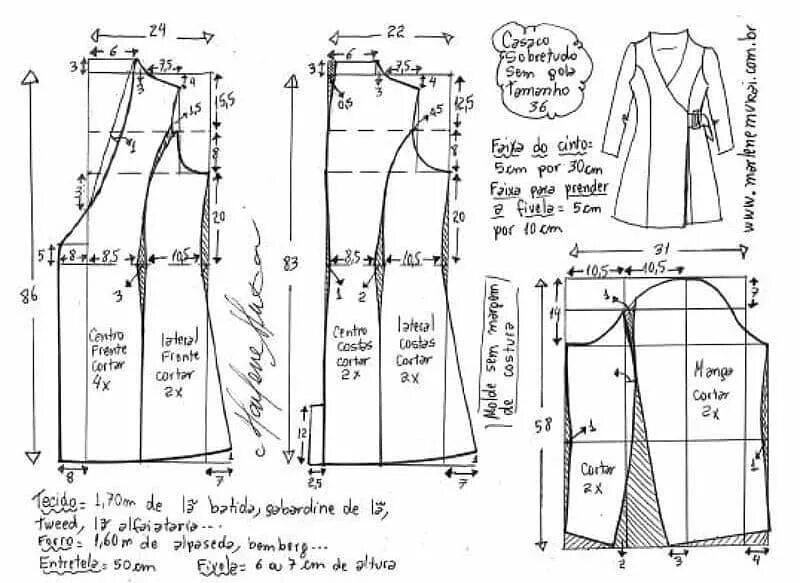 24
6
7,5
3
3
4
15,5
1,5
1
8
3
20
5
8
8,5
10,5
3
86
Centro
Frente
Cortar
4x
lateral
Frente
cortar
2x
8
7
1
22
6
7,5
3
0,5
3
4
12,5
0,5
8
20
83
8,5
10,5
1
2
Centro
costas
cortar
2x
lateral
costas
Cortar
2x
12
2,5
7
1
Marlene Mukai
Casaco
Sobretudo
Sem gola
Tamanho
36
Faixa do cinto:
5cm por 30cm
Faixa para prender
a fivela = 5cm
por 10cm
www.marlenemukai.com.br
Molde sem margem
de costura
31
10,5
10,5
1
7
14
4
58
1
1
Manga
Cortar
2x
Cortar
2x
2
3
4
Tecido = 1,70m de lã batida, gabardine de lã,
Tweed, lã alfaiataria...
Forro = 1,60m de alpaseda, bemberg...
Entretela = 50cm Fivela = 6 a 7cm de altura